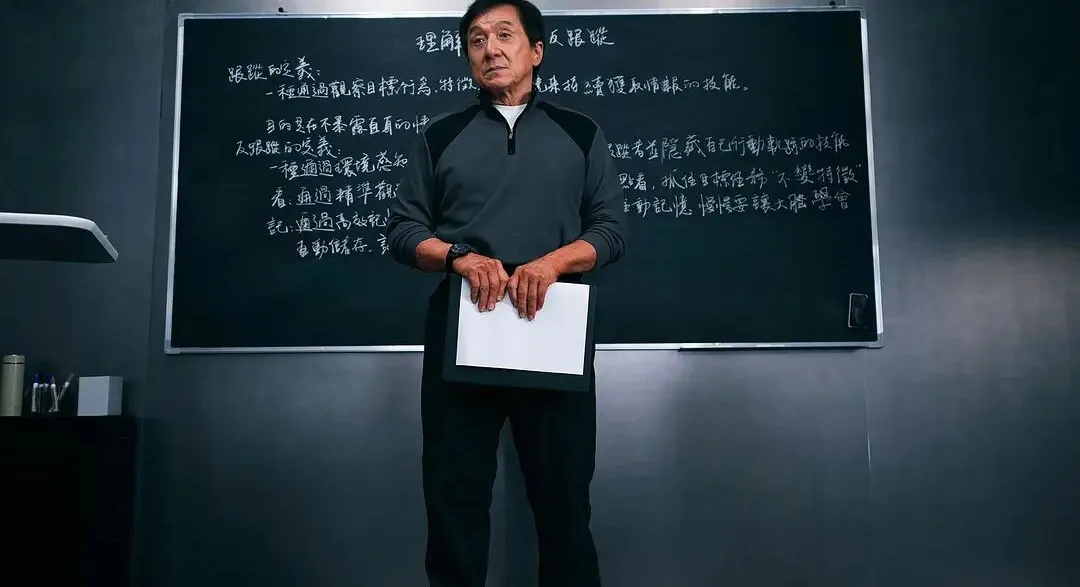 理解 反跟蹤
跟蹤的定義：
一種通過觀察目標行為、特徵 來持續獲取情報的技能。
目的是在不暴露自身的情
反跟蹤的定義：
一種通過環境感知 蹤者並隱藏自己行動軌跡的技能
看：通過精準觀 點看，抓住目標任務“不變特徵”
記：通過高效記憶 主動記憶 慢慢要讓大腦學會
自動儲存、